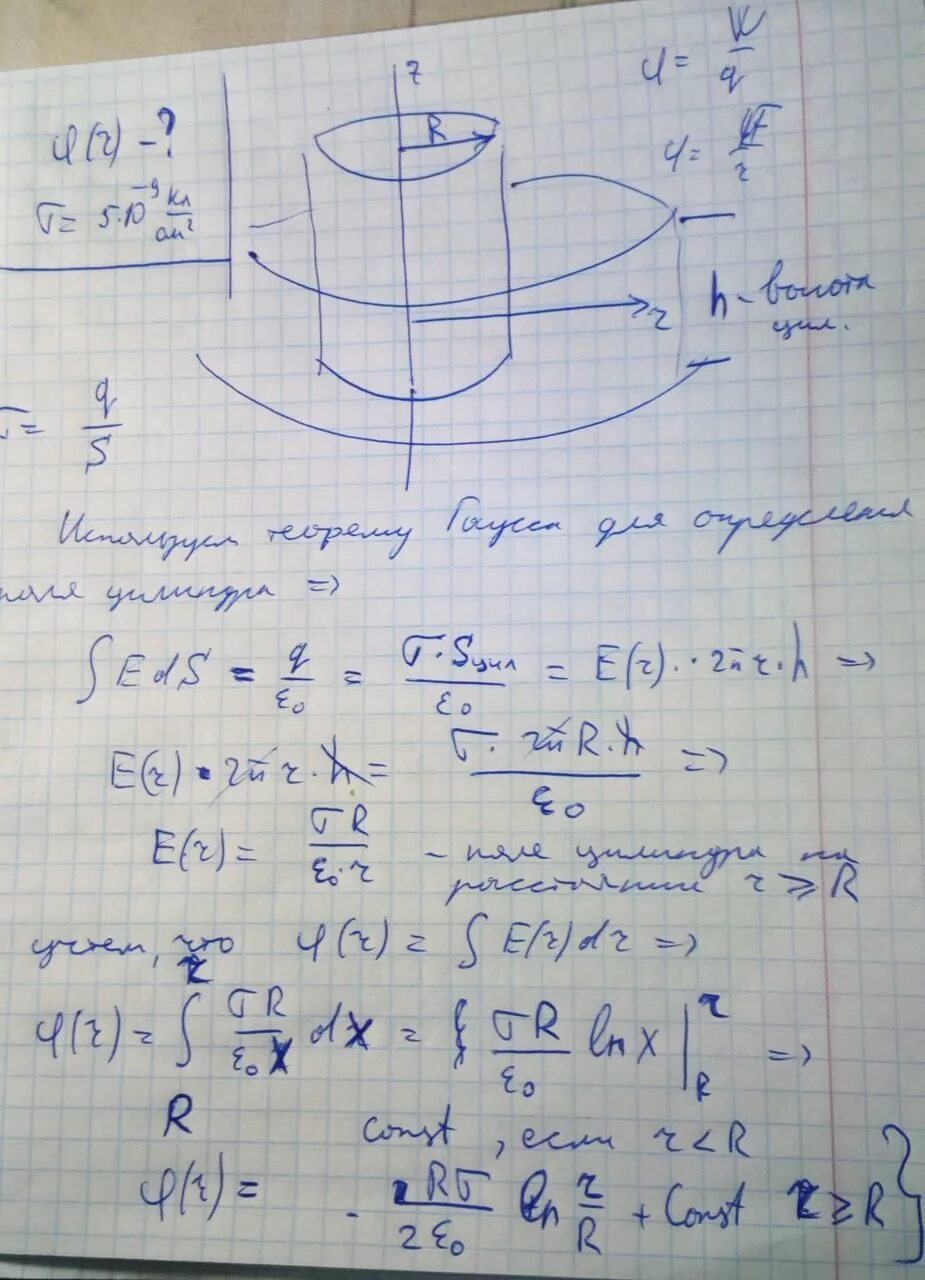 z
φ = W/q
R
φ(r) - ?
φ =
σ = 5·10⁻⁹ Кл/см²
r
h - высота
цил.
σ = q/S
Используем теорему Гаусса для определения
поля цилиндра =>
∫ E dS = q/ε₀ = σ·Sцил/ε₀ = E(r)·2πr·h =>
E(r)·2πr·h = σ·2πR·h/ε₀ =>
E(r) = σR/ε₀·r - поле цилиндра на
расстоянии r ≥ R
учтем, что φ(r) = ∫ E(r) dr =>
φ(r) = ∫_R^r σR/ε₀x dx = σR/ε₀ ln x |_R^r =>
const, если r < R
φ(r) = - 2Rσ/2ε₀ ln r/R + Const r ≥ R }